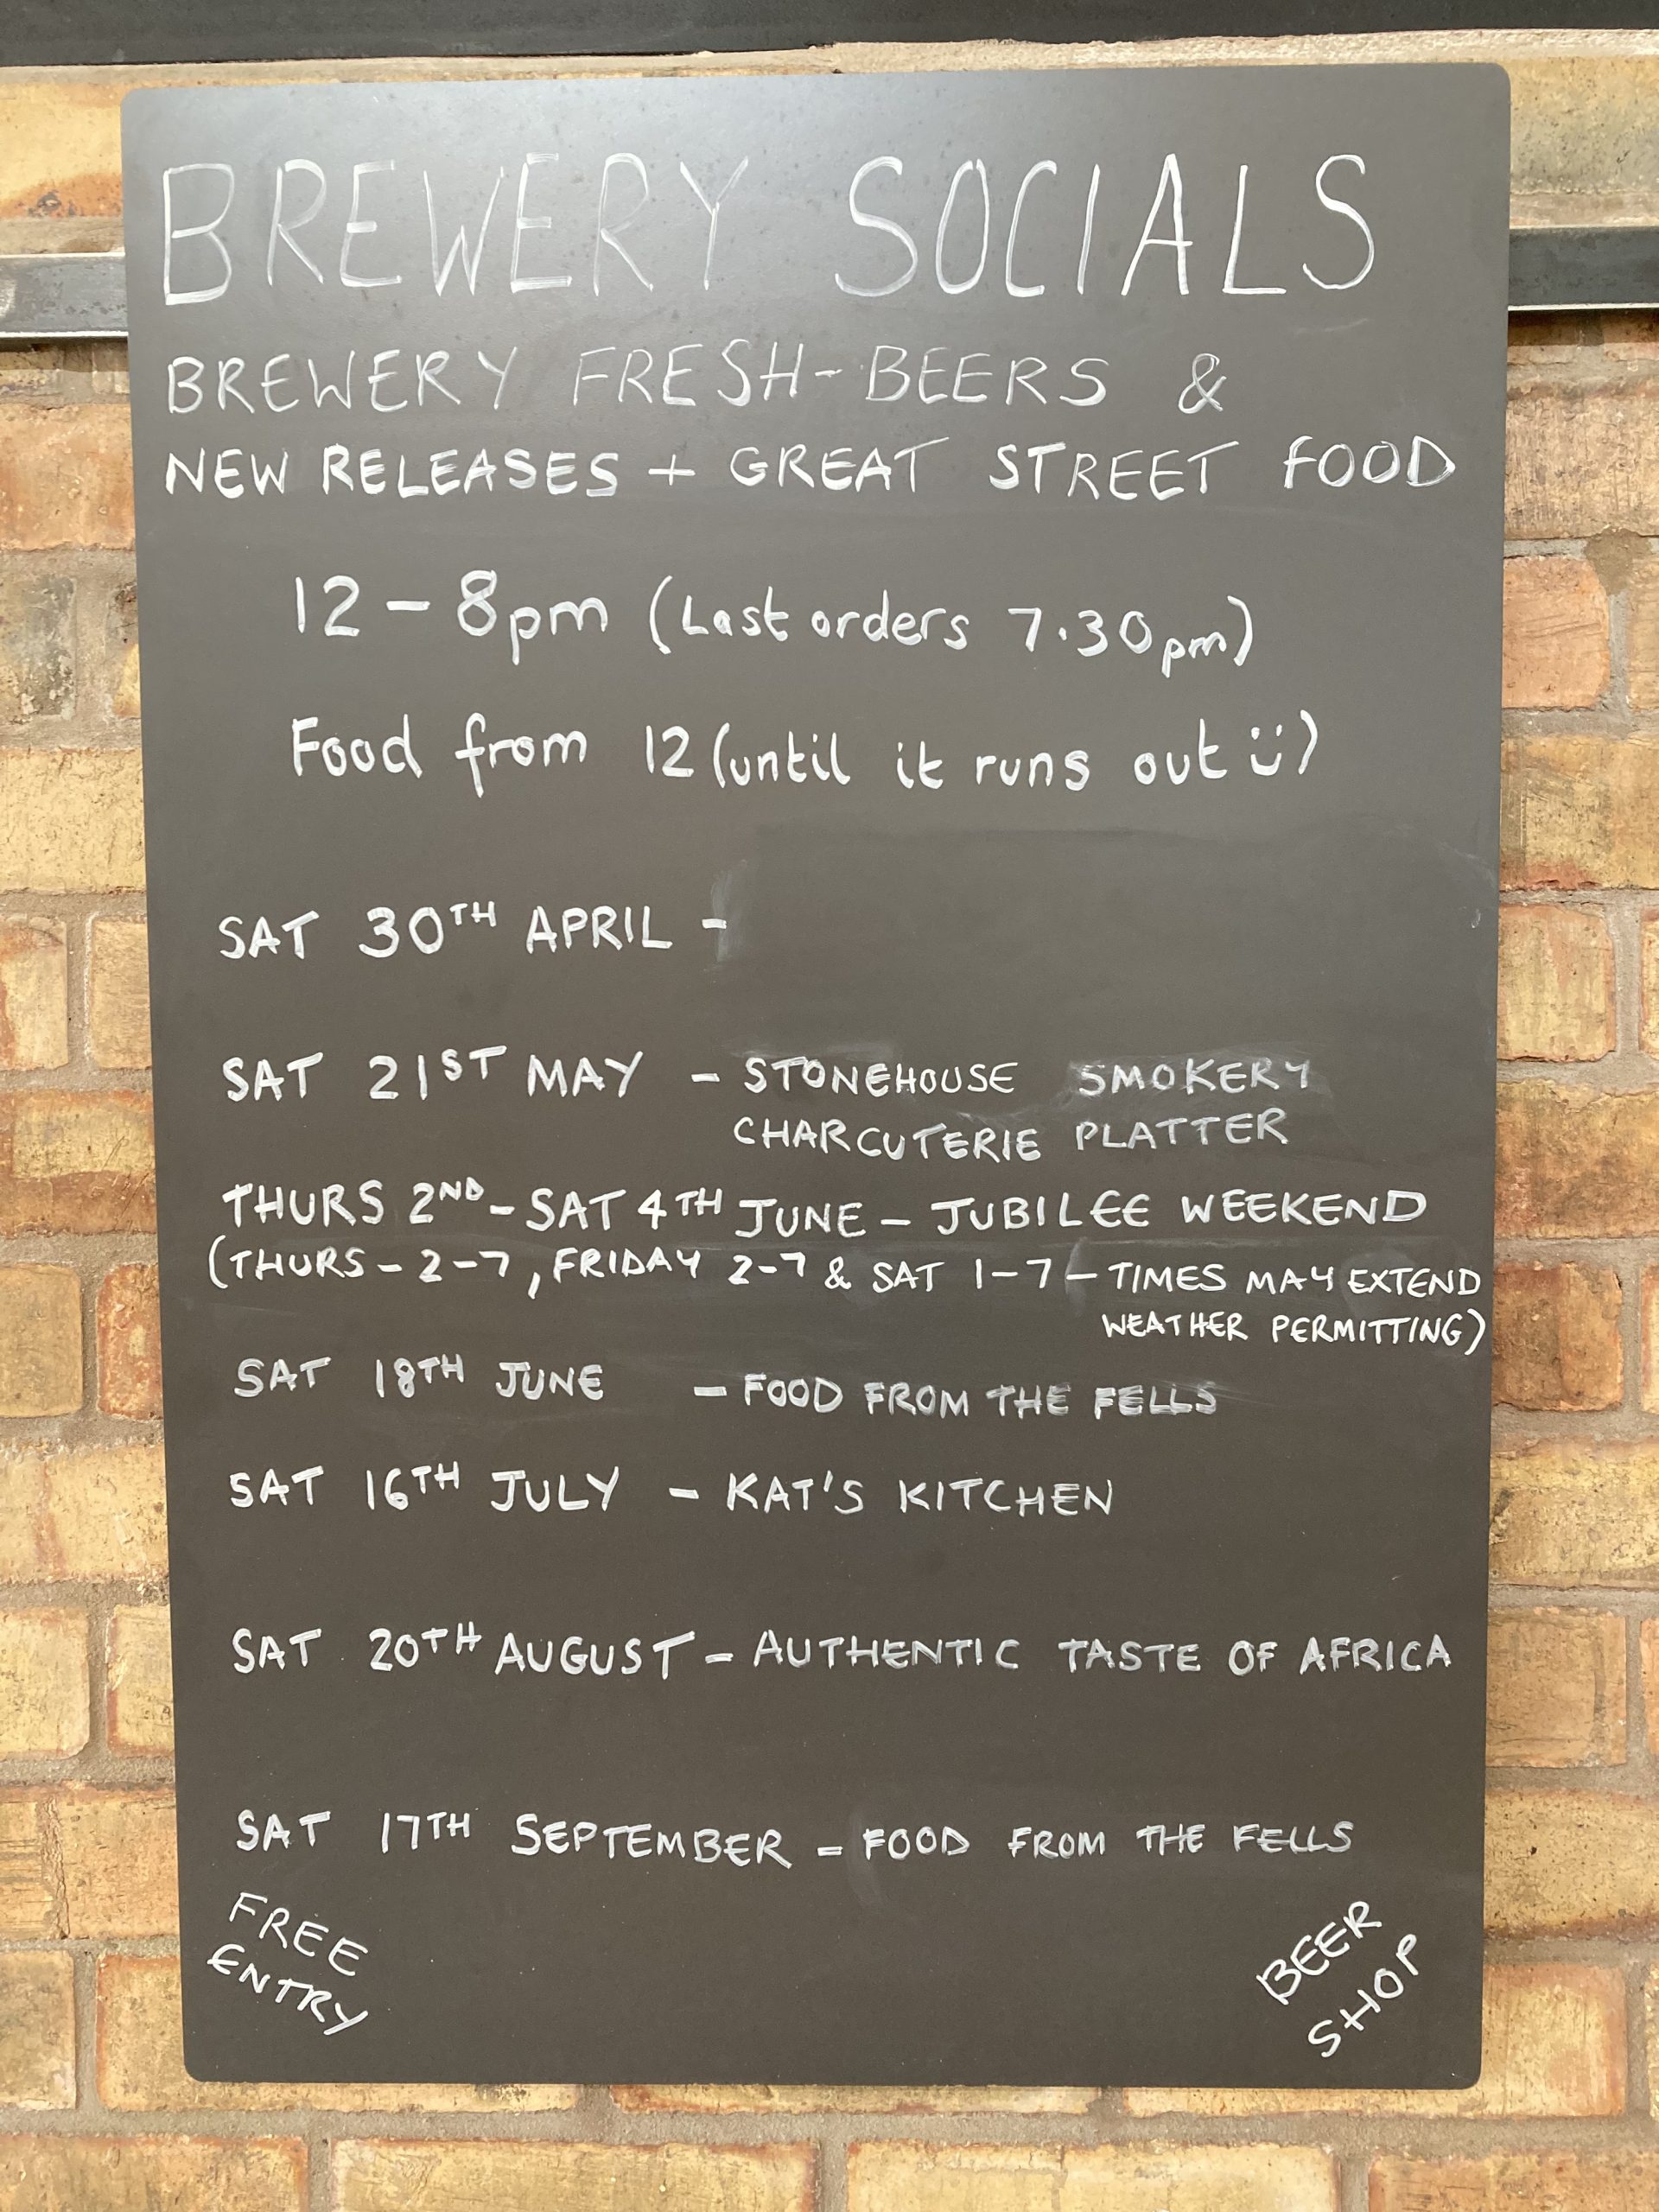 BREWERY SOCIALS
BREWERY FRESH-BEERS &
NEW RELEASES + GREAT STREET FOOD
12 - 8pm (Last orders 7.30pm)
Food from 12 (until it runs out ü)
SAT 30TH APRIL -
SAT 21ST MAY - STONEHOUSE SMOKERY
CHARCUTERIE PLATTER
THURS 2ND - SAT 4TH JUNE - JUBILEE WEEKEND
(THURS - 2-7, FRIDAY 2-7 & SAT 1-7 - TIMES MAY EXTEND
WEATHER PERMITTING)
SAT 18TH JUNE - FOOD FROM THE FELLS
SAT 16TH JULY - KAT'S KITCHEN
SAT 20TH AUGUST - AUTHENTIC TASTE OF AFRICA
SAT 17TH SEPTEMBER - FOOD FROM THE FELLS
FREE
ENTRY
BEER
SHOP